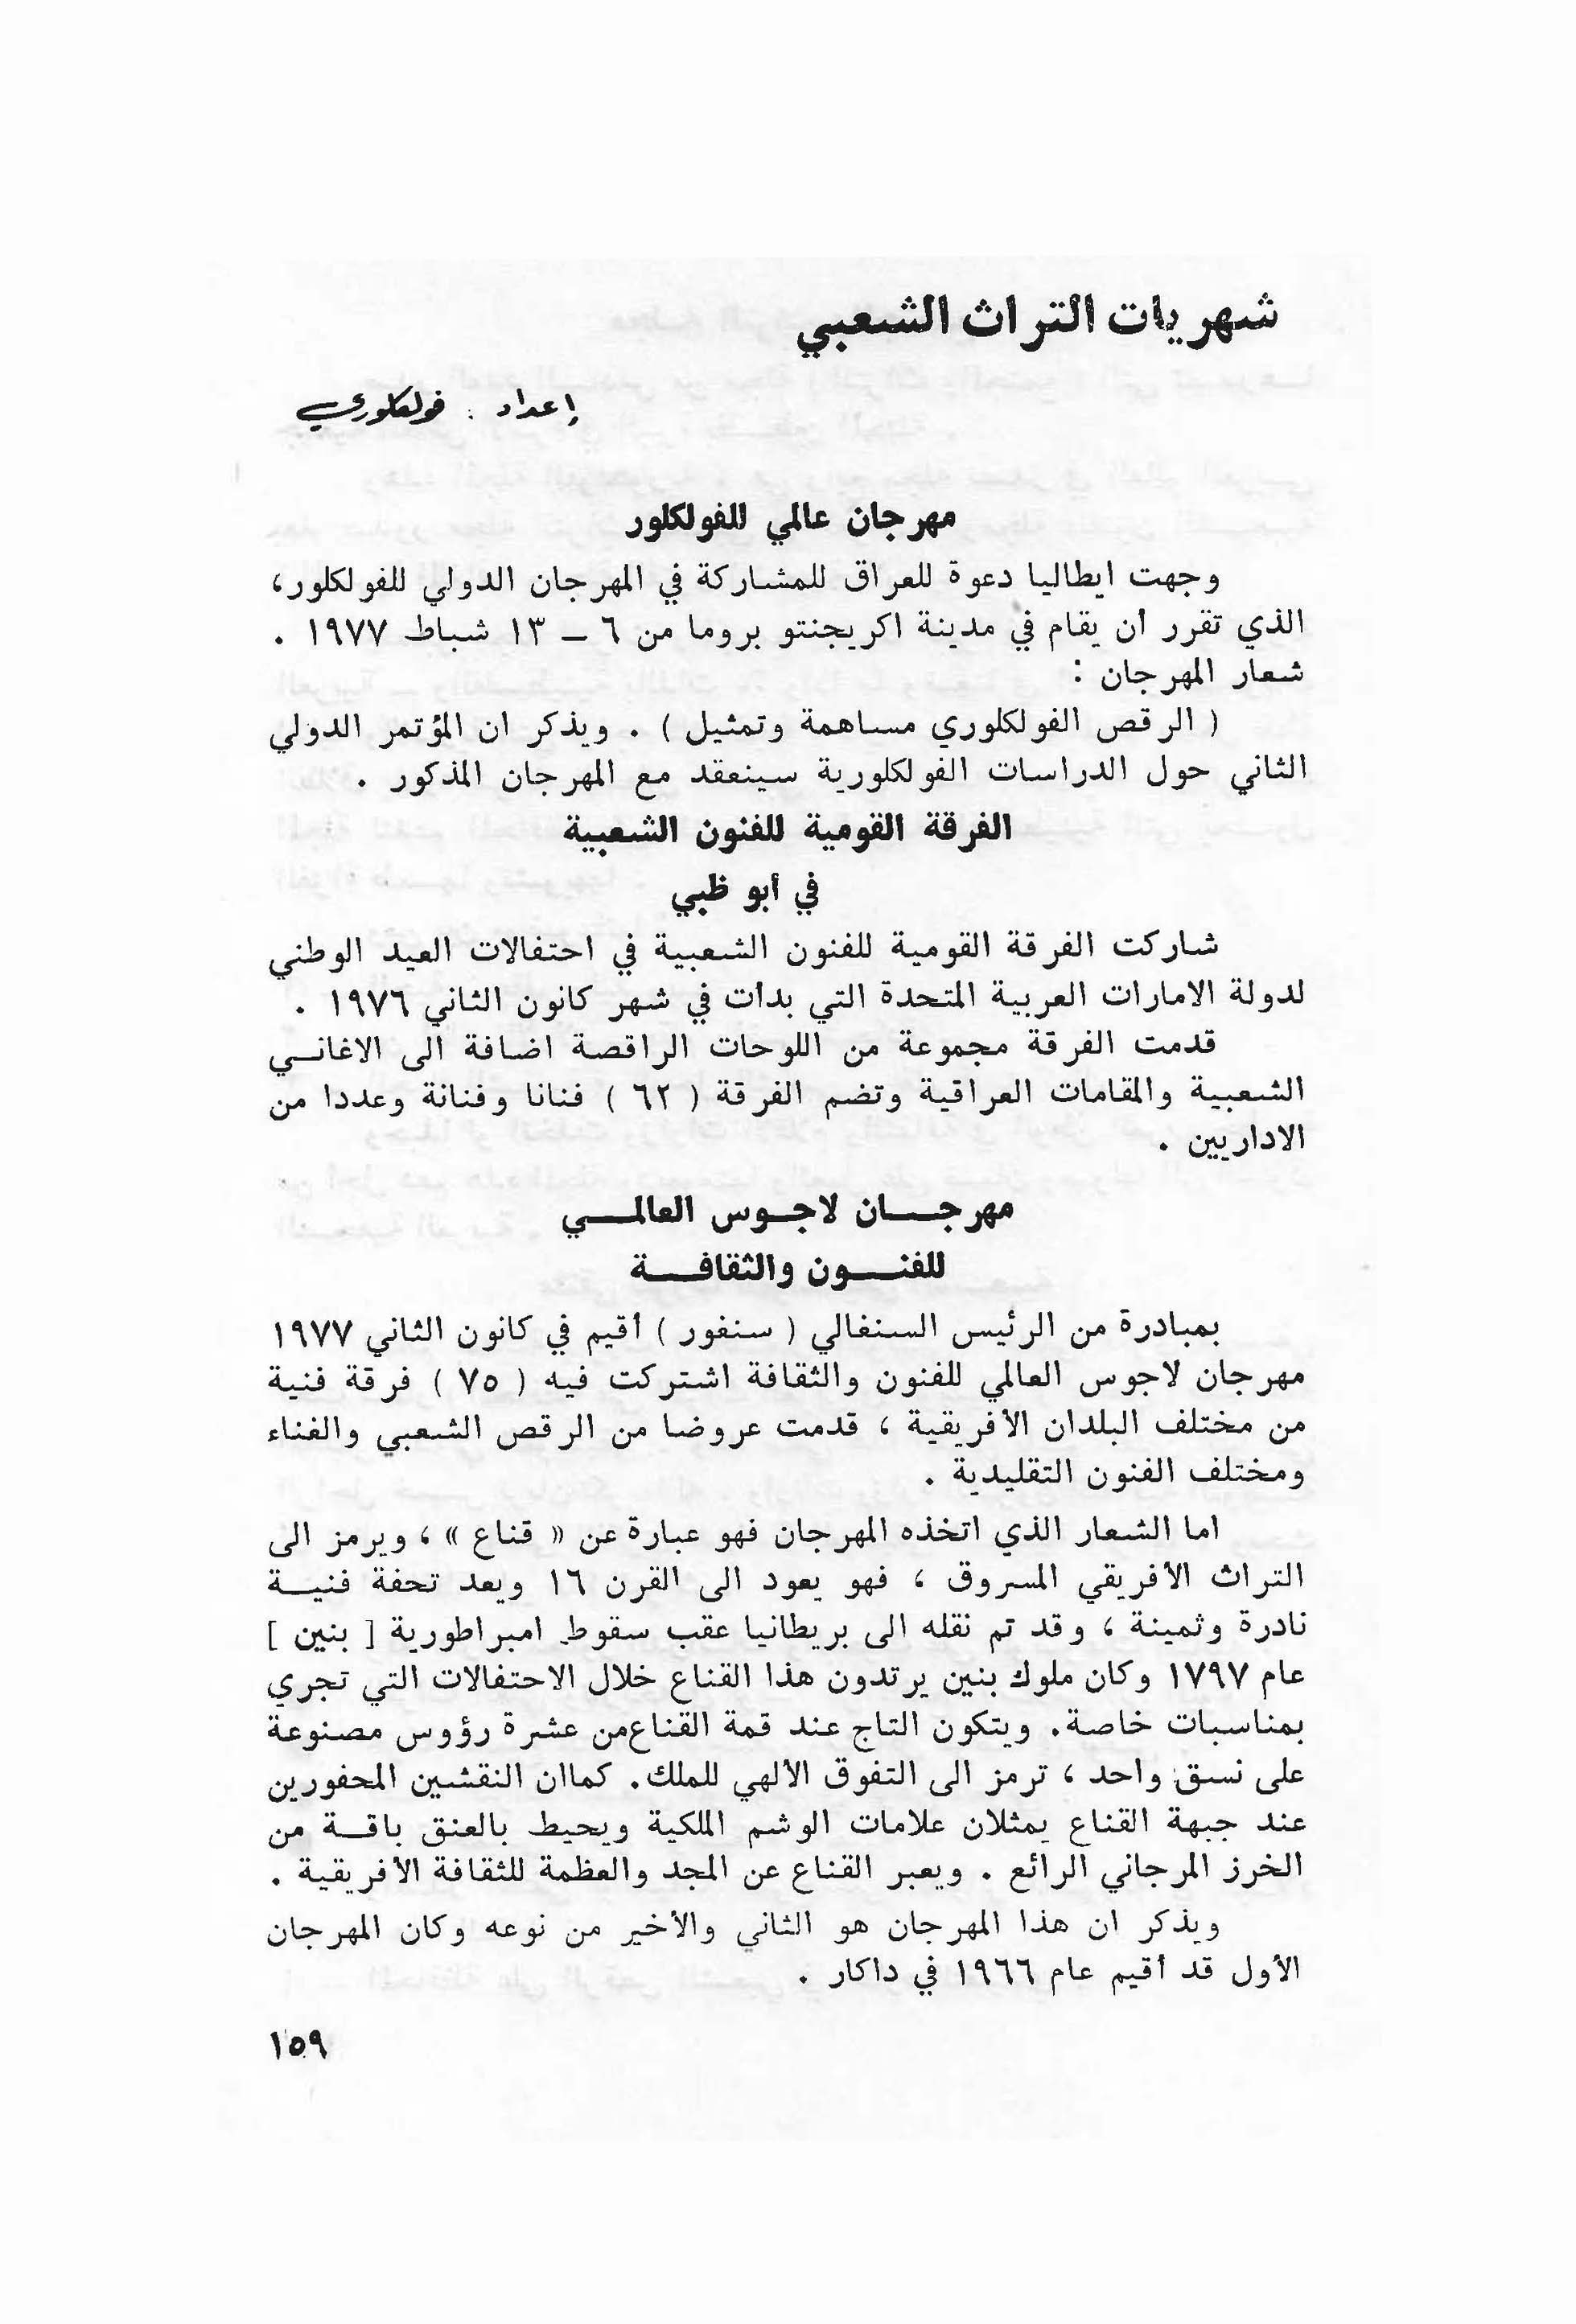 شهريات التراث الشعبي
إعداد : فولكلوري
مهرجان عالمي للفولكلور
وجهت ايطاليا دعوة للعراق للمشاركة في المهرجان الدولي للفولكلور،
الذي تقرر أن يقام في مدينة اكريجنتو بروما من ٦ – ١٣ شباط ١٩٧٧ .
شعار المهرجان :
( الرقص الفولكلوري مساهمة وتمثيل ) . ويذكر ان المؤتمر الدولي
الثاني حول الدراسات الفولكلورية سينعقد مع المهرجان المذكور .
الفرقة القومية للفنون الشعبية
في أبو ظبي
شاركت الفرقة القومية للفنون الشعبية في احتفالات العيد الوطني
لدولة الامارات العربية المتحدة التي بدأت في شهر كانون الثاني ١٩٧٦ .
قدمت الفرقة مجموعة من اللوحات الراقصة اضافة الى الاغانـي
الشعبية والمقامات العراقية وتضم الفرقة ( ٦٢ ) فنانا وفنانة وعددا من
الاداريين .
مهرجـــان لاجـوس العالمـــي
للفنـــون والثقافـــة
بمبادرة من الرئيس السنغالي ( سنغور ) أقيم في كانون الثاني ١٩٧٧
مهرجان لاجوس العالمي للفنون والثقافة اشتركت فيه ( ٧٥ ) فرقة فنية
من مختلف البلدان الأفريقية ، قدمت عروضا من الرقص الشعبي والغناء
ومختلف الفنون التقليدية .
اما الشعار الذي اتخذه المهرجان فهو عبارة عن « قناع » ، ويرمز الى
التراث الأفريقي المسروق ، فهو يعود الى القرن ١٦ ويعد تحفة فنيـة
نادرة وثمينة ، وقد تم نقله الى بريطانيا عقب سقوط امبراطورية [ بنين ]
عام ١٧٩٧ وكان ملوك بنين يرتدون هذا القناع خلال الاحتفالات التي تجري
بمناسبات خاصة. ويتكون التاج عند قمة القناع من عشرة رؤوس مصنوعة
على نسق واحد ، ترمز الى التفوق الألهي للملك. كماان النقشين المحفورين
عند جبهة القناع يمثلان علامات الوشم الملكية ويحيط بالعنق باقـة من
الخرز المرجاني الرائع . ويعبر القناع عن المجد والعظمة للثقافة الأفريقية .
ويذكر ان هذا المهرجان هو الثاني والأخير من نوعه وكان المهرجان
الأول قد أقيم عام ١٩٦٦ في داكار .
١٥٩